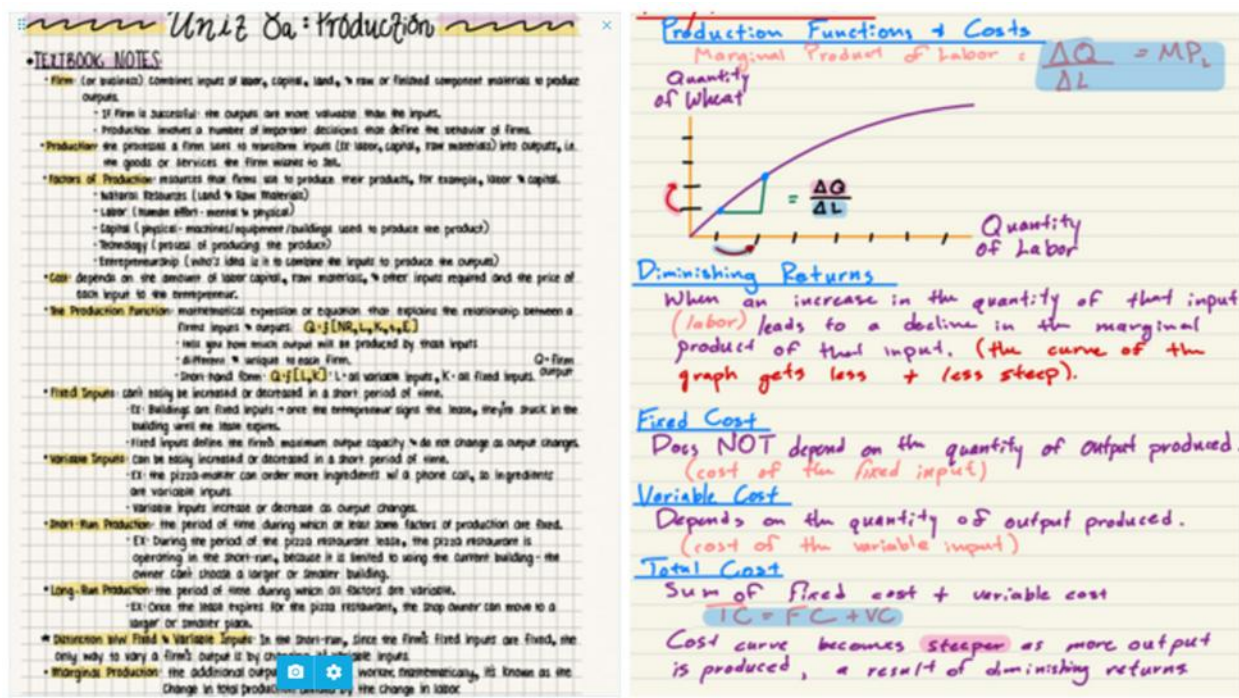 Unit 8a: Production
• TEXTBOOK NOTES:
• Firm- (or business) combines inputs of labor, capital, land, & raw or finished component materials to produce
outputs.
• If firm is successful- the outputs are more valuable than the inputs.
• Production involves a number of important decisions that define the behavior of firms.
• Production- the processes a firm uses to transform inputs (EX: labor, capital, raw materials) into outputs, i.e.
the goods or services the firm wishes to sell.
• Factors of Production- resources that firms use to produce their products, for example, labor & capital.
• Natural Resources (Land & Raw Materials)
• Labor (human effort - mental & physical)
• Capital (physical - machines/equipment/buildings used to produce the product)
• Technology (process of producing the product)
• Entrepreneurship (who's idea is it to combine the inputs to produce the outputs)
• Cost- depends on the amount of labor capital, raw materials, & other inputs required and the price of
each input to the entrepreneur.
• The Production Function- mathematical expression or equation that explains the relationship between a
firm's inputs & outputs: Q=f[NR,L,K,t,E]
• tells you how much output will be produced by those inputs
• different & unique to each firm.
• Short-hand form: Q=f[L,K] L=all variable inputs, K=all fixed inputs.
Q=firm
output
• Fixed Inputs- can't easily be increased or decreased in a short period of time.
• EX: Buildings are fixed inputs → once the entrepreneur signs the lease, they're stuck in the
building until the lease expires.
• Fixed inputs define the firm's maximum output capacity & do not change as output changes.
• Variable Inputs- Can be easily increased or decreased in a short period of time.
• EX: the pizza-maker can order more ingredients w/ a phone call, so ingredients
are variable inputs
• Variable inputs increase or decrease as output changes.
• Short-Run Production- the period of time during which at least some factors of production are fixed.
• EX: During the period of the pizza restaurant lease, the pizza restaurant is
operating in the short-run, because it is limited to using the current building - the
owner can't choose a larger or smaller building.
• Long-Run Production- the period of time during which all factors are variable.
• EX: Once the lease expires for the pizza restaurant, the shop owner can move to a
larger or smaller place.
* Distinction b/w Fixed & Variable Inputs: In the short-run, since the firm's fixed inputs are fixed, the
only way to vary a firm's output is by inputs.
• Marginal Production- the additional worker, mathematically, it's known as the
Change in total the change in labor
Production Functions + Costs
Marginal Product of Labor = ΔQ/ΔL = MPL
Quantity
of Wheat
= ΔQ
ΔL
Quantity
of Labor
Diminishing Returns
When an increase in the quantity of that input
(labor) leads to a decline in the marginal
product of that input. (the curve of the
graph gets less + less steep).
Fixed Cost
Does NOT depend on the quantity of output produced.
(cost of the fixed input)
Variable Cost
Depends on the quantity of output produced.
(cost of the variable input)
Total Cost
Sum of fixed cost + variable cost
TC = FC + VC
Cost curve becomes steeper as more output
is produced, a result of diminishing returns